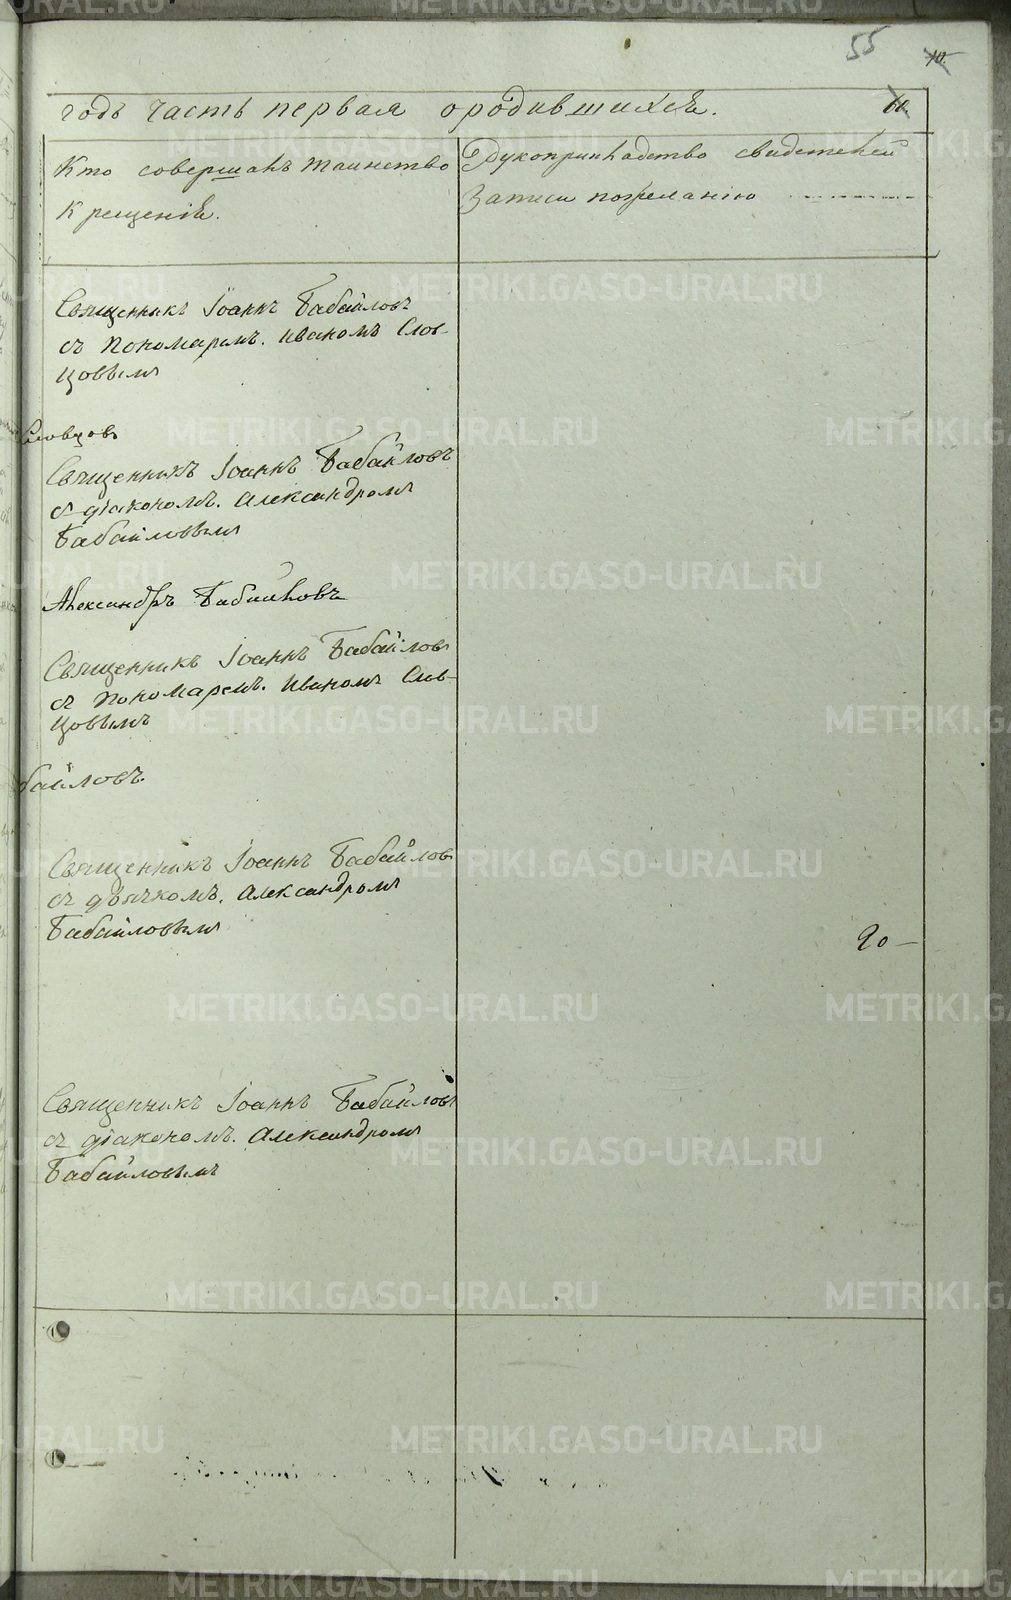 55
10
годъ часть первая ородившихся.
11
Кто совершалъ таинство
Крещенія.
Рукоприкладство свидетелей
Записи пожеланію
Священникъ Іоаннъ Бабайловъ
съ Пономаремъ. Иваномъ Слов-
цовымъ
Словцовъ
Священникъ Іоаннъ Бабайловъ
съ діакономъ. Александромъ
Бабайловымъ
Александръ Бабайловъ
Священникъ Іоаннъ Бабайловъ
съ Пономаремъ. Иваномъ Слов-
цовымъ
байловъ.
Священникъ Іоаннъ Бабайловъ
съ дьячкомъ. Александромъ
Бабайловымъ
20
Священникъ Іоаннъ Бабайловъ
съ діакономъ. Александромъ
Бабайловымъ
METRIKI.GASO-URAL.RU